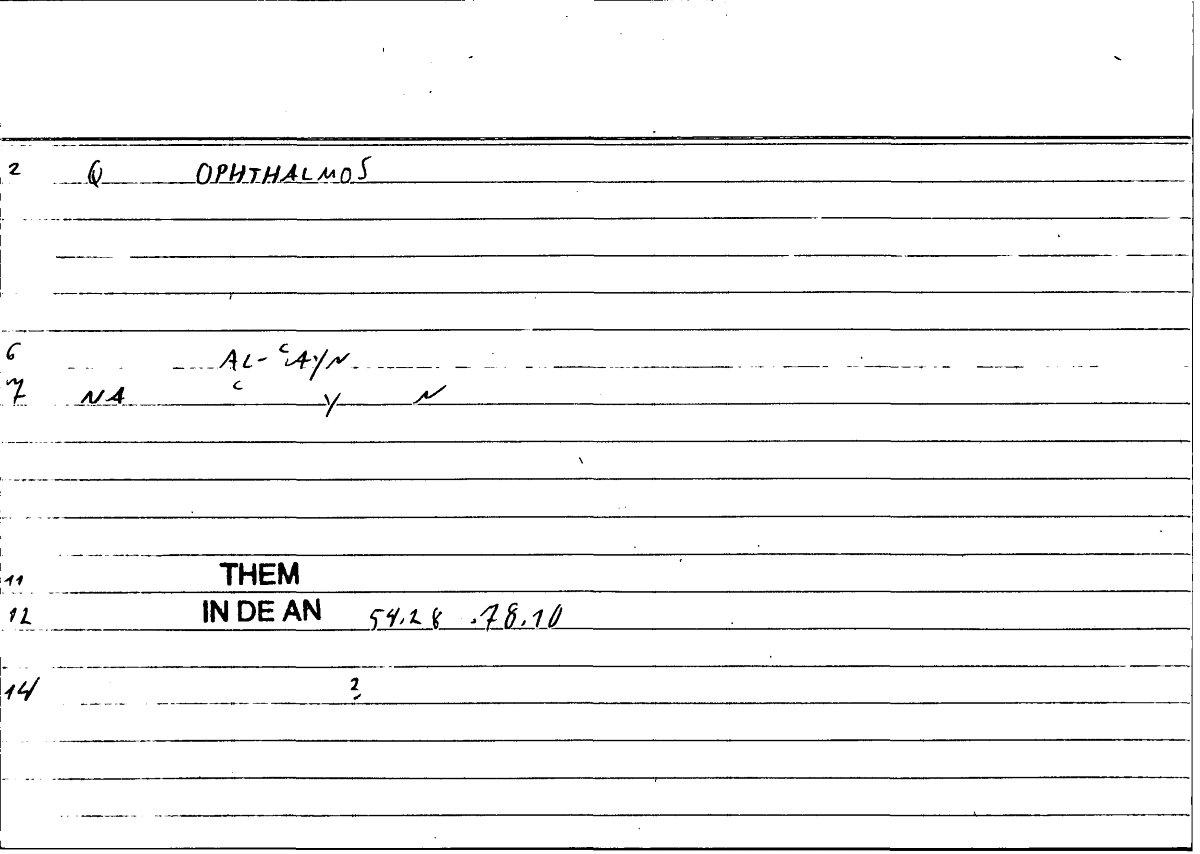 2 Q OPHTHALMOS
6 AL-ʿAYN
7 NA ʿ Y N
11 THEM
12 IN DE AN 54.28 .78.10
14 2